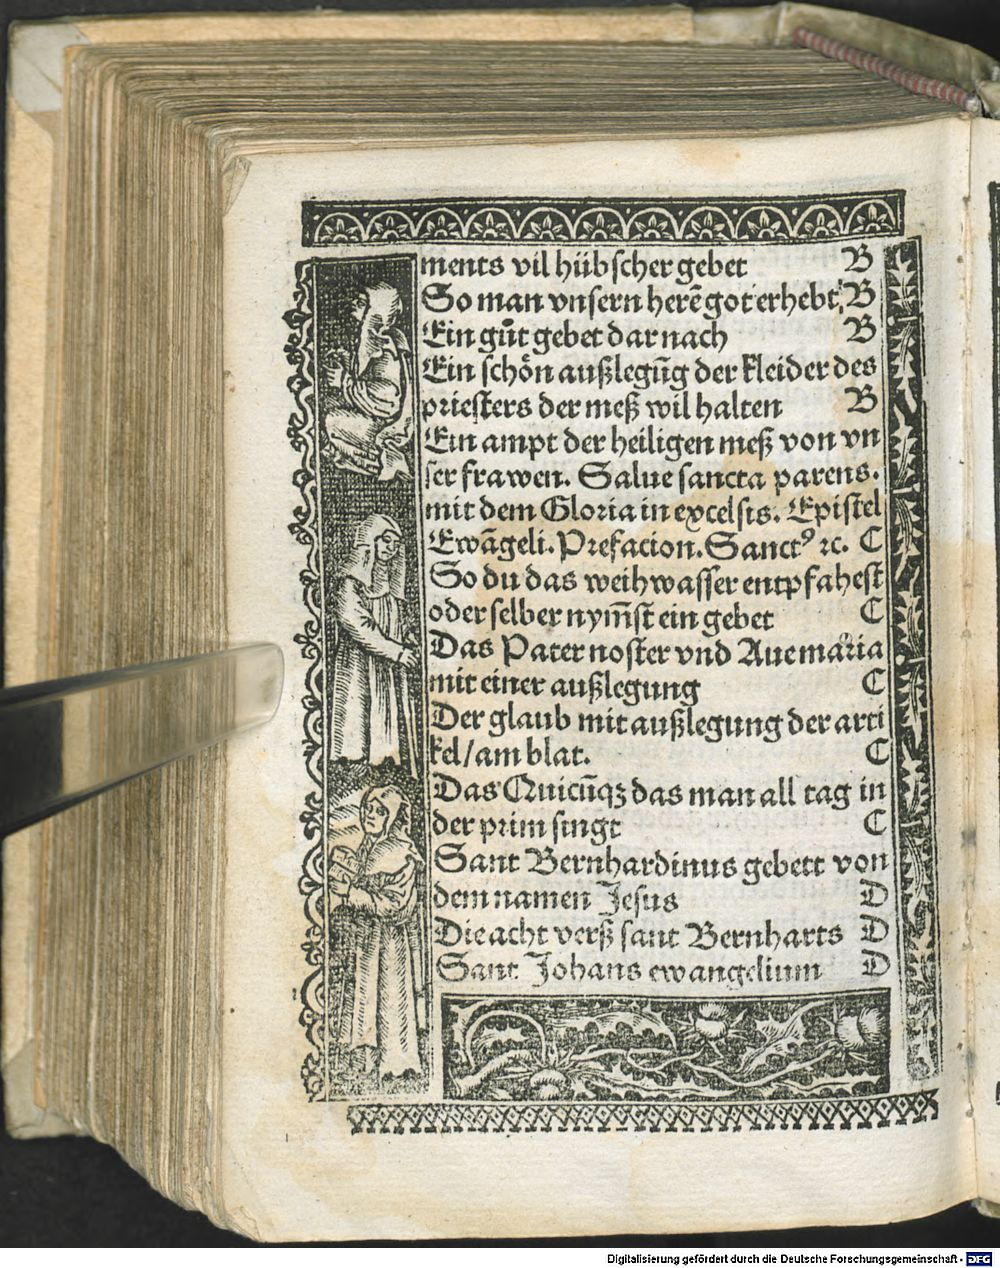 ments vil hübscher gebet B
So man vnsern herē got erhebt B
Ein gůt gebet dar nach B
Ein schön außlegūg der kleider des
priesters der meß wil halten B
Ein ampt der heiligen meß von vn
ser frawen. Salue sancta parens.
mit dem Gloria in excelsis. Epistel
Ewāgeli. Prefacion. Sanctꝰ ꝛc. C
So du das weihwasser entpfahest
oder selber nym̄st ein gebet C
Das Pater noster vnd Aue maria
mit einer außlegung C
Der glaub mit außlegung der arti
kel/ am blat. C
Das Quicūqꝫ das man all tag in
der prim singt C
Sant Bernhardinus gebett von
dem namen Jesus D
Die acht verß sant Bernharts D
Sant Johans ewangelium D
Digitalisierung gefördert durch die Deutsche Forschungsgemeinschaft - DFG